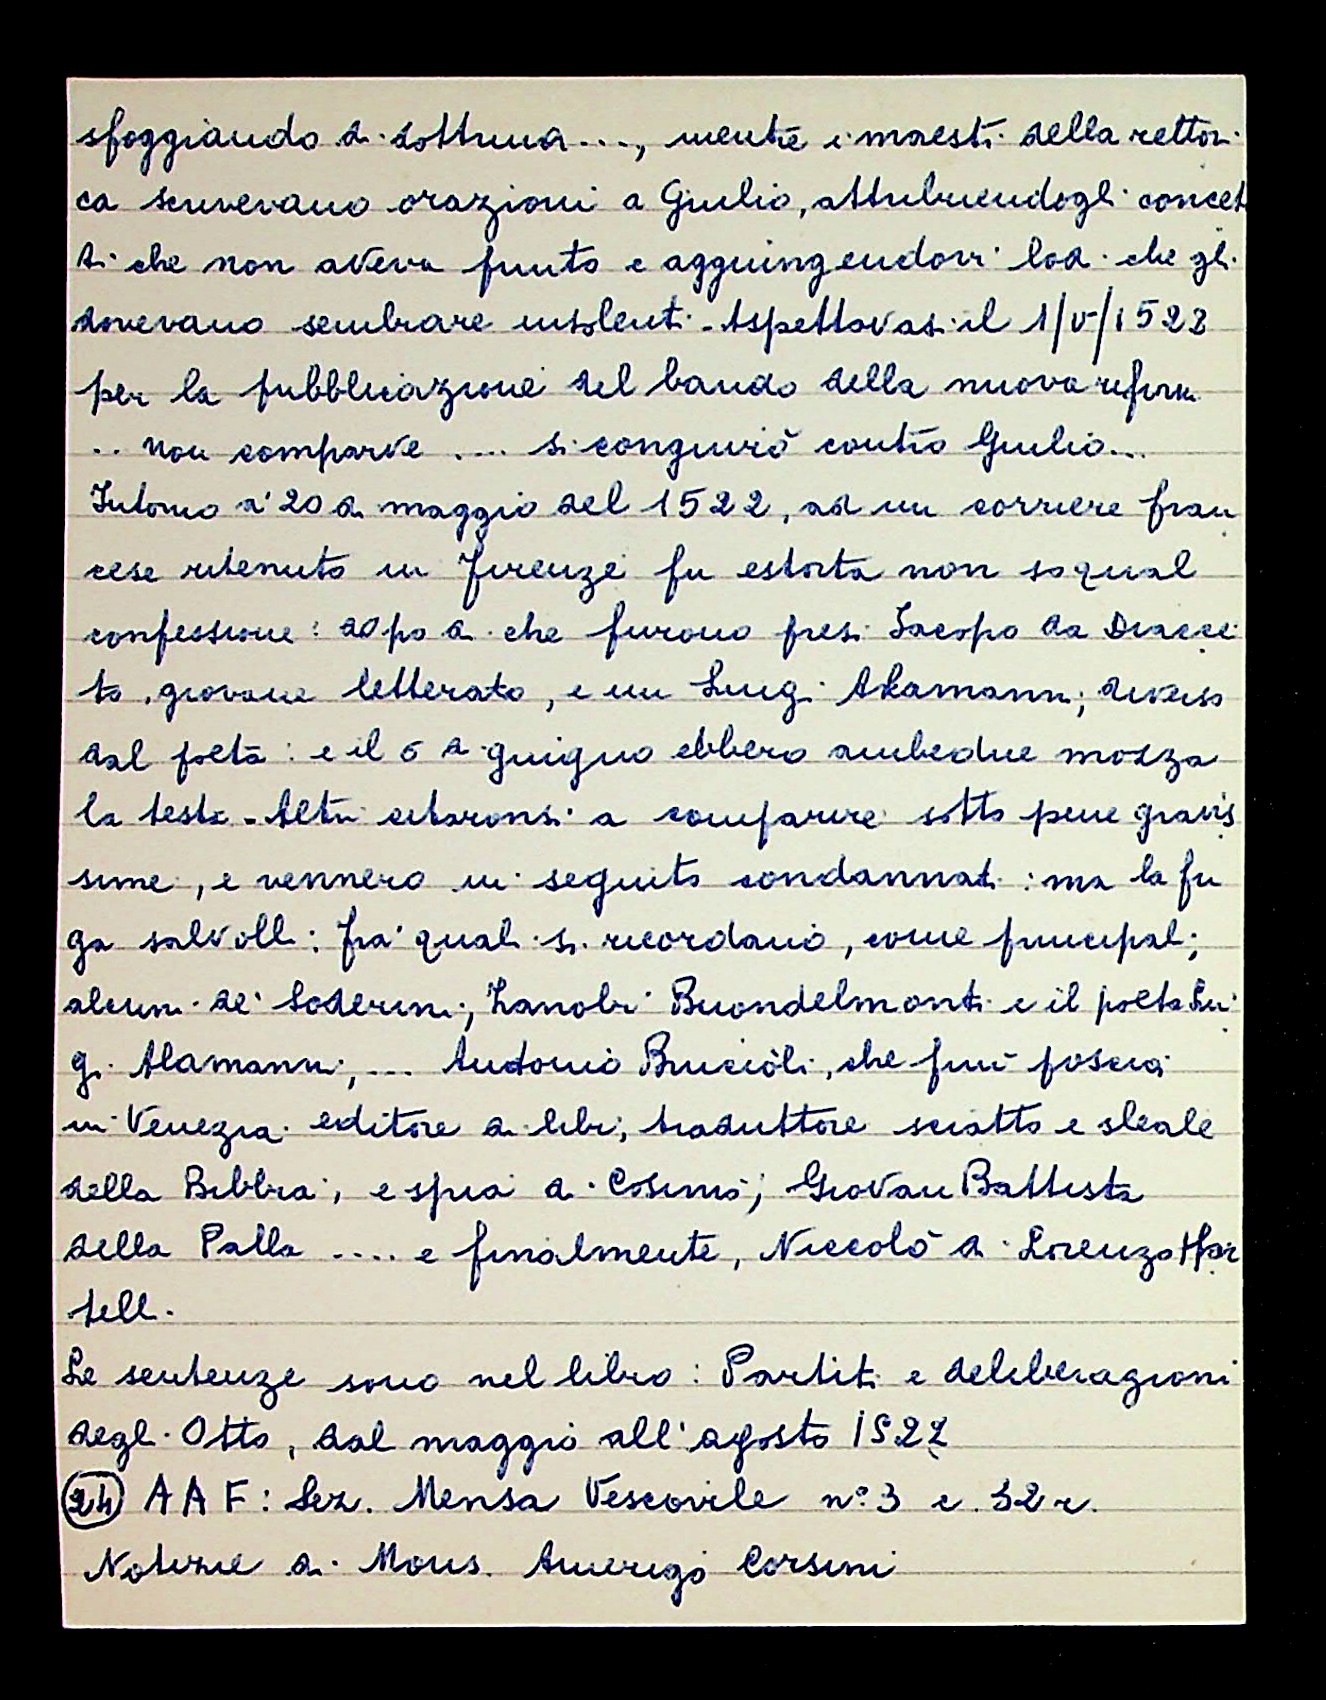 sfoggiando di dottrina..., mentre i maestri della rettori
ca scrivevano orazioni a Giulio, attribuendogli concet
ti che non aveva punto e aggiungendovi lodi che gli
dovevano sembrare insolenti. Aspettavasi il 1/V/1522
per la pubblicazione del bando della nuova reform
.. non comparve .... si congiurò contro Giulio...
Intorno a' 20 di maggio del 1522, ad un corriere fran
cese ritenuto in Firenze fu estorta non so qual
confessione: dopo di che furono presi Iacopo da Diacce
to, giovane letterato, e un Luigi Alamanni, diverso
dal poeta: e il 6 di giugno ebbero ambedue mozza
la testa. Altri citaronsi a comparire sotto pene gravis
sime, e vennero in seguito condannati: ma la fu
ga salvolli: fra' quali si ricordano, come principali,
alcuni de' Soderini, Zanobi Buondelmonti e il poeta Lui
gi Alamanni,... Antonio Brucioli, che finì poscia
in Venezia editore di libri, traduttore sciatto e sleale
della Bibbia, e spia di Cosimo; Giovan Battista
della Palla .... e finalmente, Niccolò di Lorenzo Mar
telli.
Le sentenze sono nel libro: Partiti e deliberazioni
degli Otto, dal maggio all'agosto 1522
24 AAF: Sez. Mensa Vescovile n° 3 c. 32 r.
Notizie di Mons. Amerigo Corsini